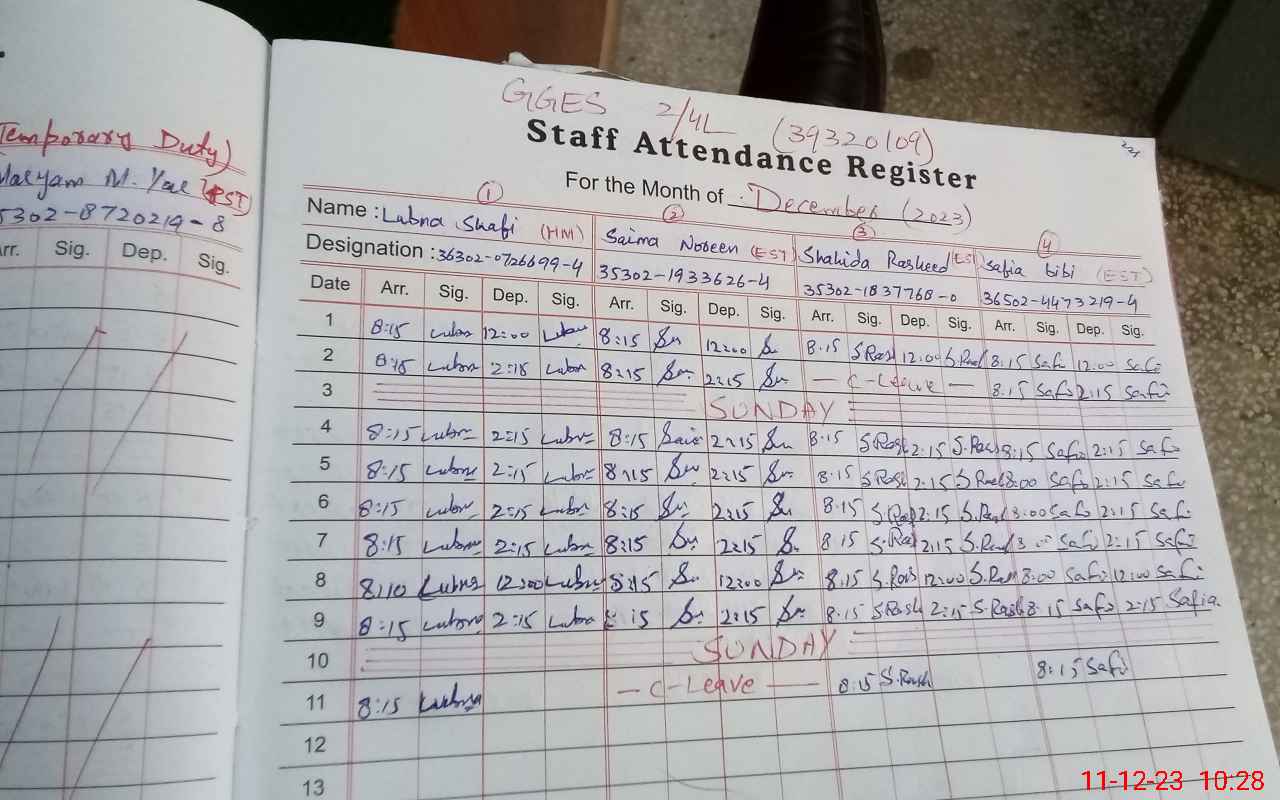 GGES 2/4L (39320109)
Staff Attendance Register
For the Month of December (2023)
(Temporary Duty)
Maryam M. Yar (PST)
35302-8720219-8
Arr. Sig. Dep. Sig.
① ② ③ ④
Name : Lubna Shafi (HM) Saima Noreen (EST) Shahida Rasheed (EST) Safia bibi (EST)
Designation : 36302-0726699-4 35302-1933626-4 35302-1837768-0 36502-4473219-4
Date Arr. Sig. Dep. Sig. Arr. Sig. Dep. Sig. Arr. Sig. Dep. Sig. Arr. Sig. Dep. Sig.
1 8:15 Lubna 12:00 Lubna 8:15 12:00 8:15 S.Rash 12:00 S.Rash 8:15 Safi 12:00 Safi
2 8:15 Lubna 2:15 Lubna 8:15 2:15 — C-Leave — 8:15 Safi 2:15 Safi
3 SUNDAY
4 8:15 Lubna 2:15 Lubna 8:15 Sai 2:15 8:15 S.Rash 2:15 S.Rash 8:15 Safi 2:15 Safi
5 8:15 Lubna 2:15 Lubna 8:15 2:15 8:15 S.Rash 2:15 S.Rash 8:00 Safi 2:15 Safi
6 8:15 Lubna 2:15 Lubna 8:15 2:15 8:15 S.Rash 2:15 S.Rash 8:00 Safi 2:15 Safi
7 8:15 Lubna 2:15 Lubna 8:15 2:15 8:15 S.Rash 2:15 S.Rash Safi 2:15 Safi
8 8:10 Lubna 12:00 Lubna 8:15 12:00 8:15 S.Rash 12:00 S.Rash 8:00 Safi 12:00 Safi
9 8:15 Lubna 2:15 Lubna 8:15 2:15 8:15 S.Rash 2:15 S.Rash 8:15 Safi 2:15 Safia
10 SUNDAY
11 8:15 Lubna — C-Leave — 8:15 S.Rash 8:15 Safi
12
13
11-12-23 10:28